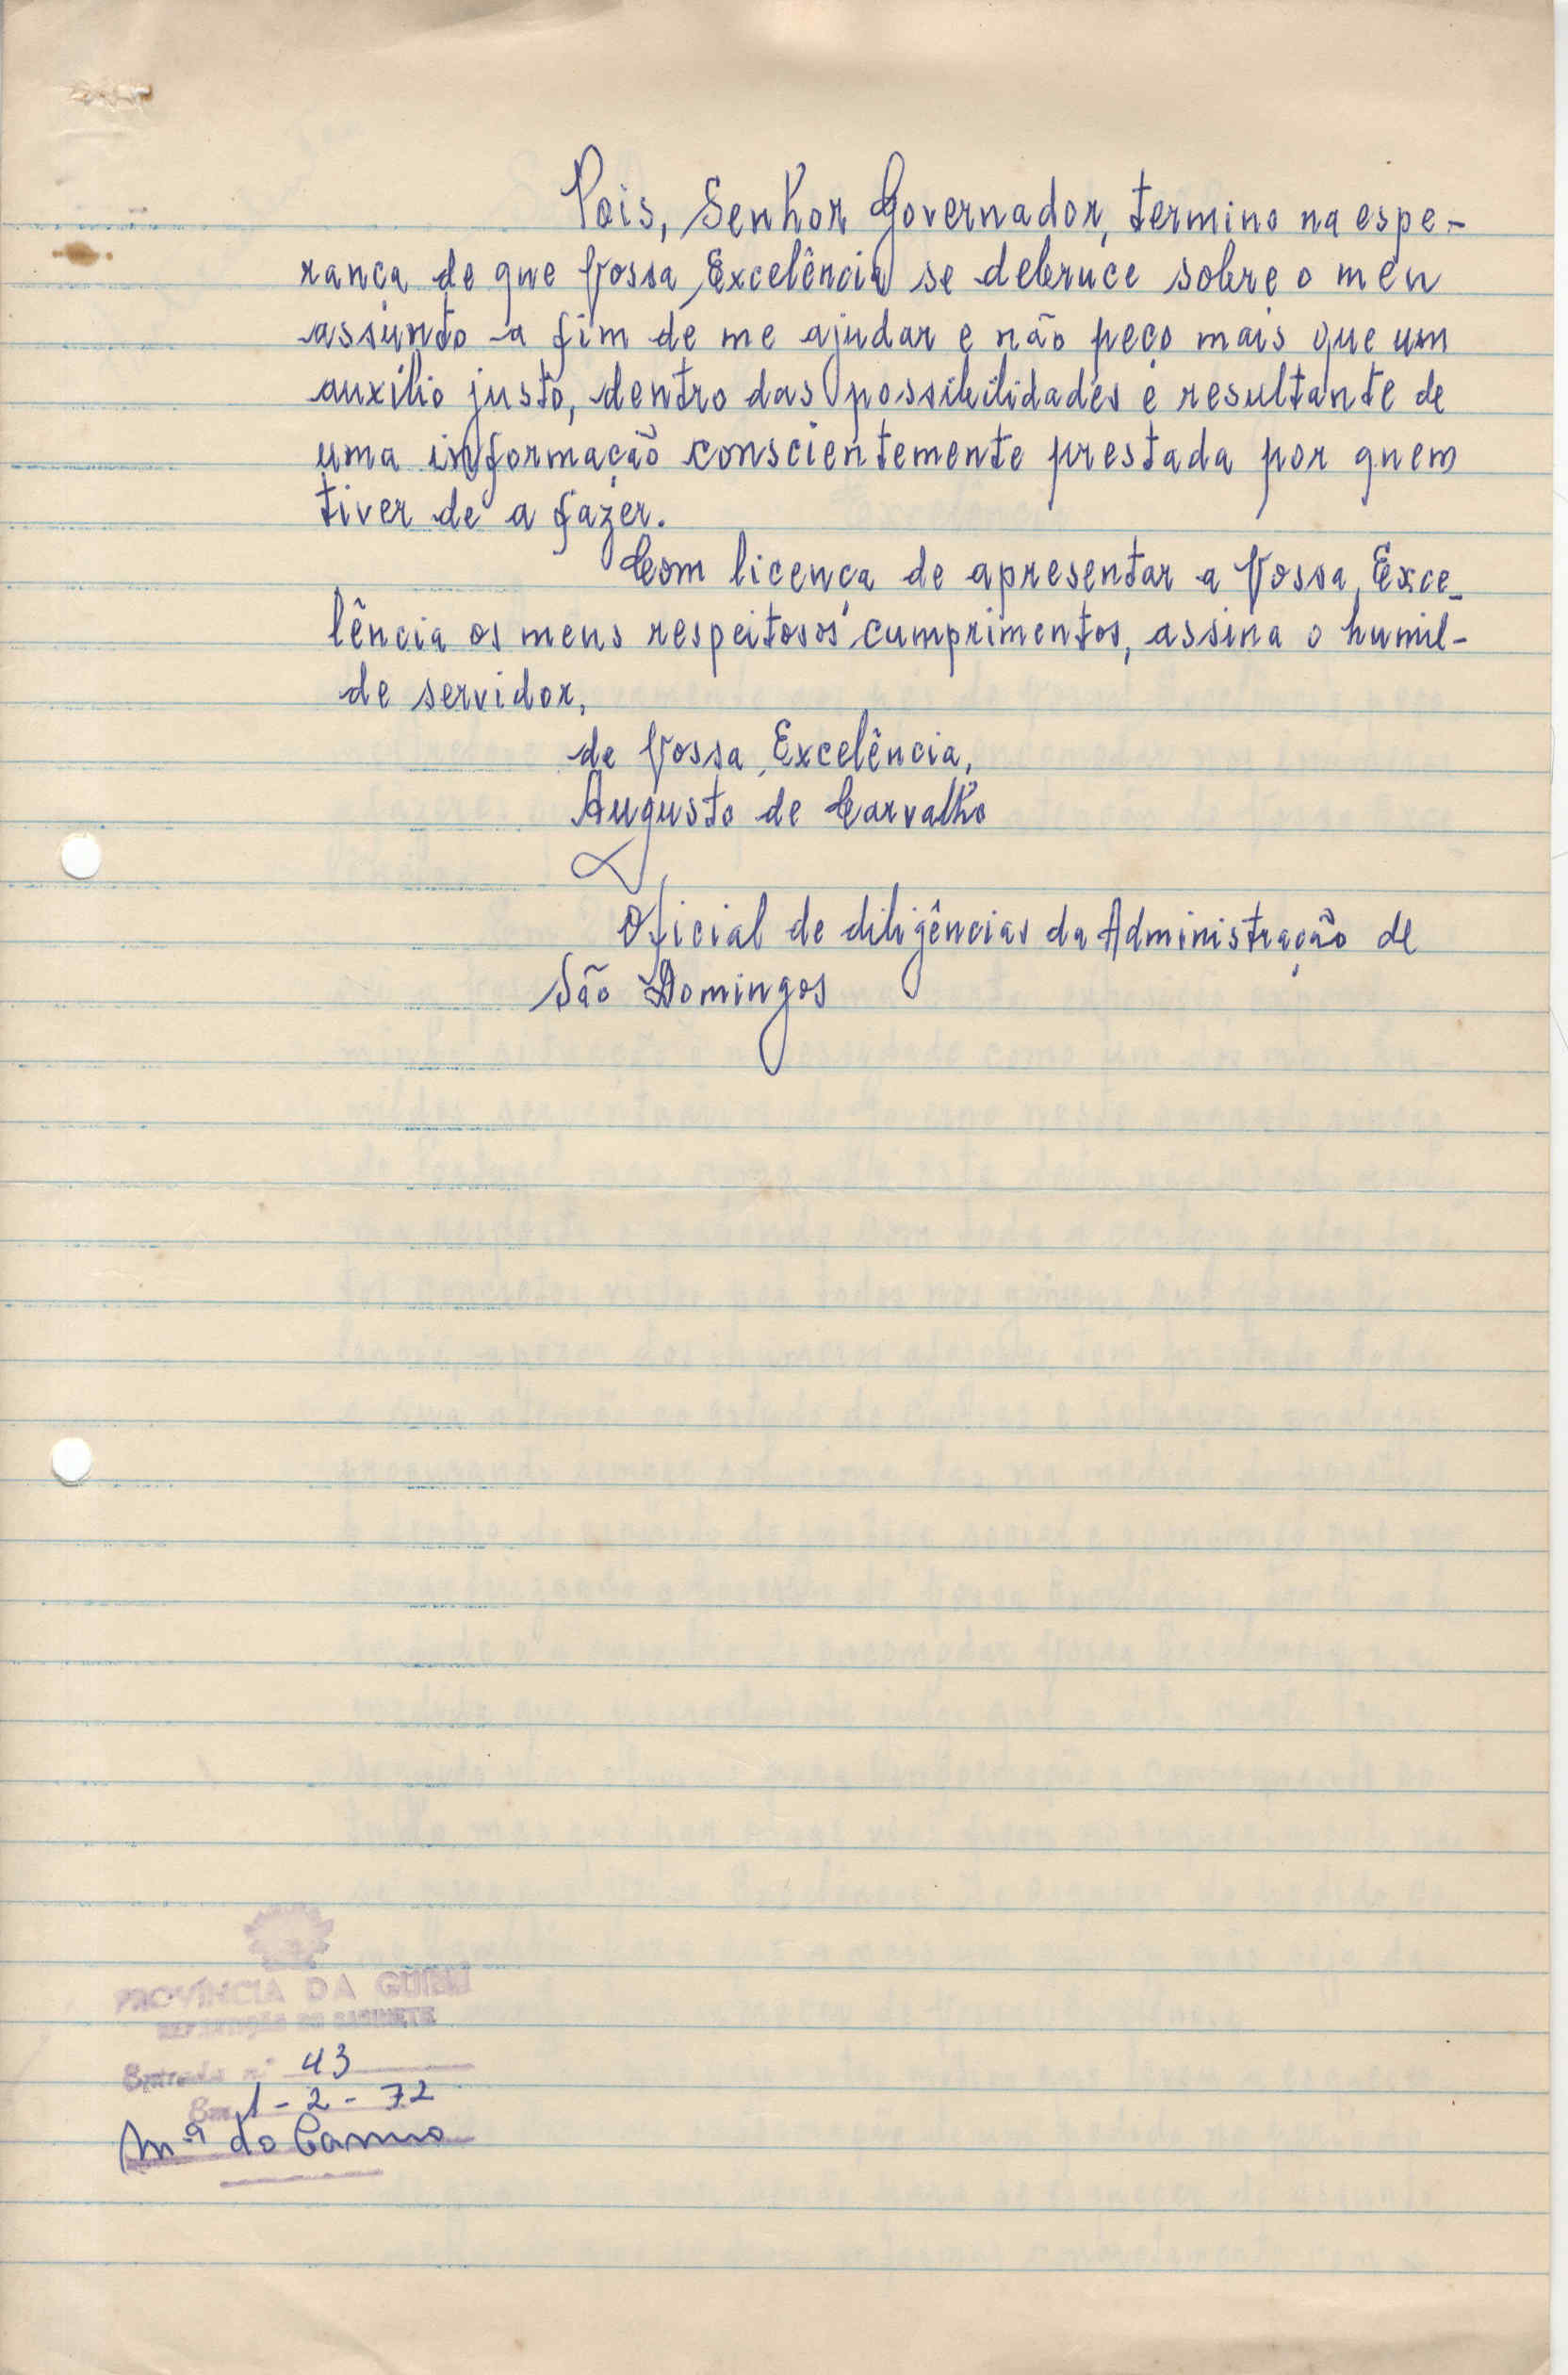 Pois, Senhor Governador, termino na espe-
rança de que Vossa Excelência se debruce sobre o meu
assunto a fim de me ajudar e não peço mais que um
auxílio justo, dentro das possibilidades e resultante de
uma informação conscientemente prestada por quem
tiver de a fazer.
Com licença de apresentar a Vossa Exce-
lência os meus respeitosos cumprimentos, assina o humil-
de servidor,
de Vossa Excelência,
Augusto de Carvalho
Oficial de diligências da Administração de
São Domingos
PROVÍNCIA DA GUINÉ
REPARTIÇÃO DO GABINETE
Entrada nº 43
Em 1-2-72
Mª do Carmo